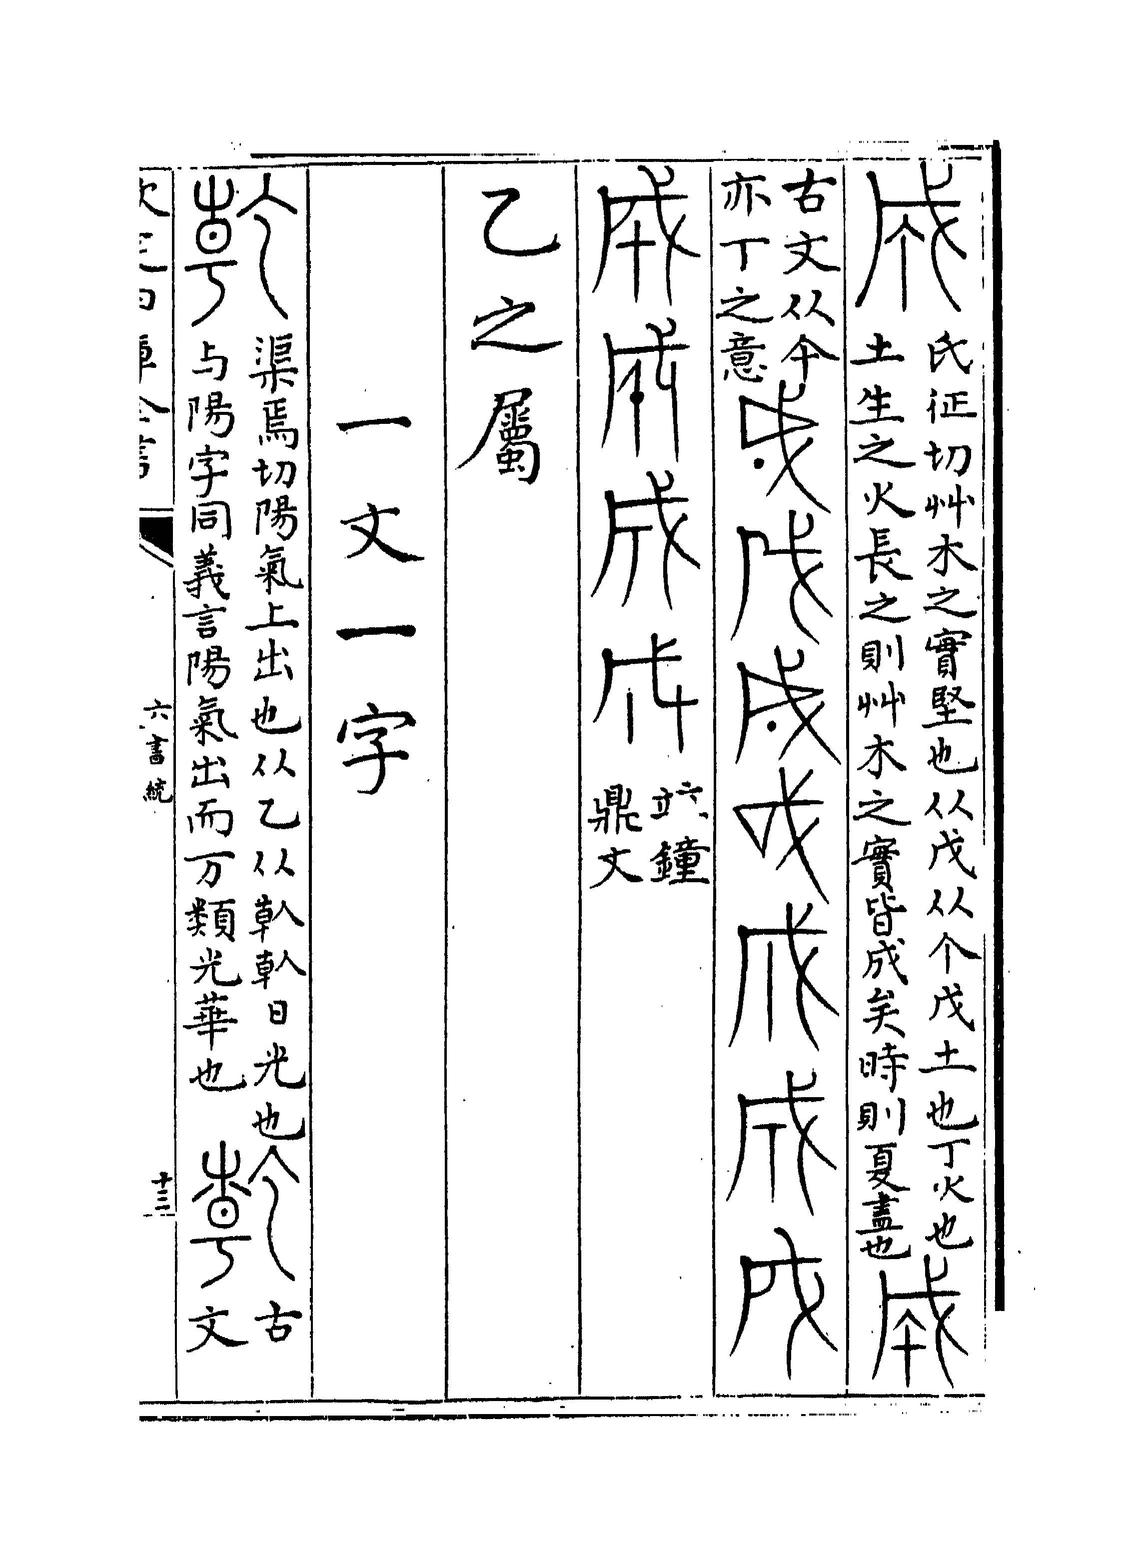 氏征切艸木之實堅也从戊从个戊土也丁火也
土生之火長之則艸木之實皆成矣時則夏盡也
古文从午
亦丁之意
竝鐘
鼎文
乙之屬
一文一字
渠焉切陽氣上出也从乙从倝倝日光也
与陽字同義言陽氣出而万類光華也
古
文
欽定四庫全書
六書統
十三